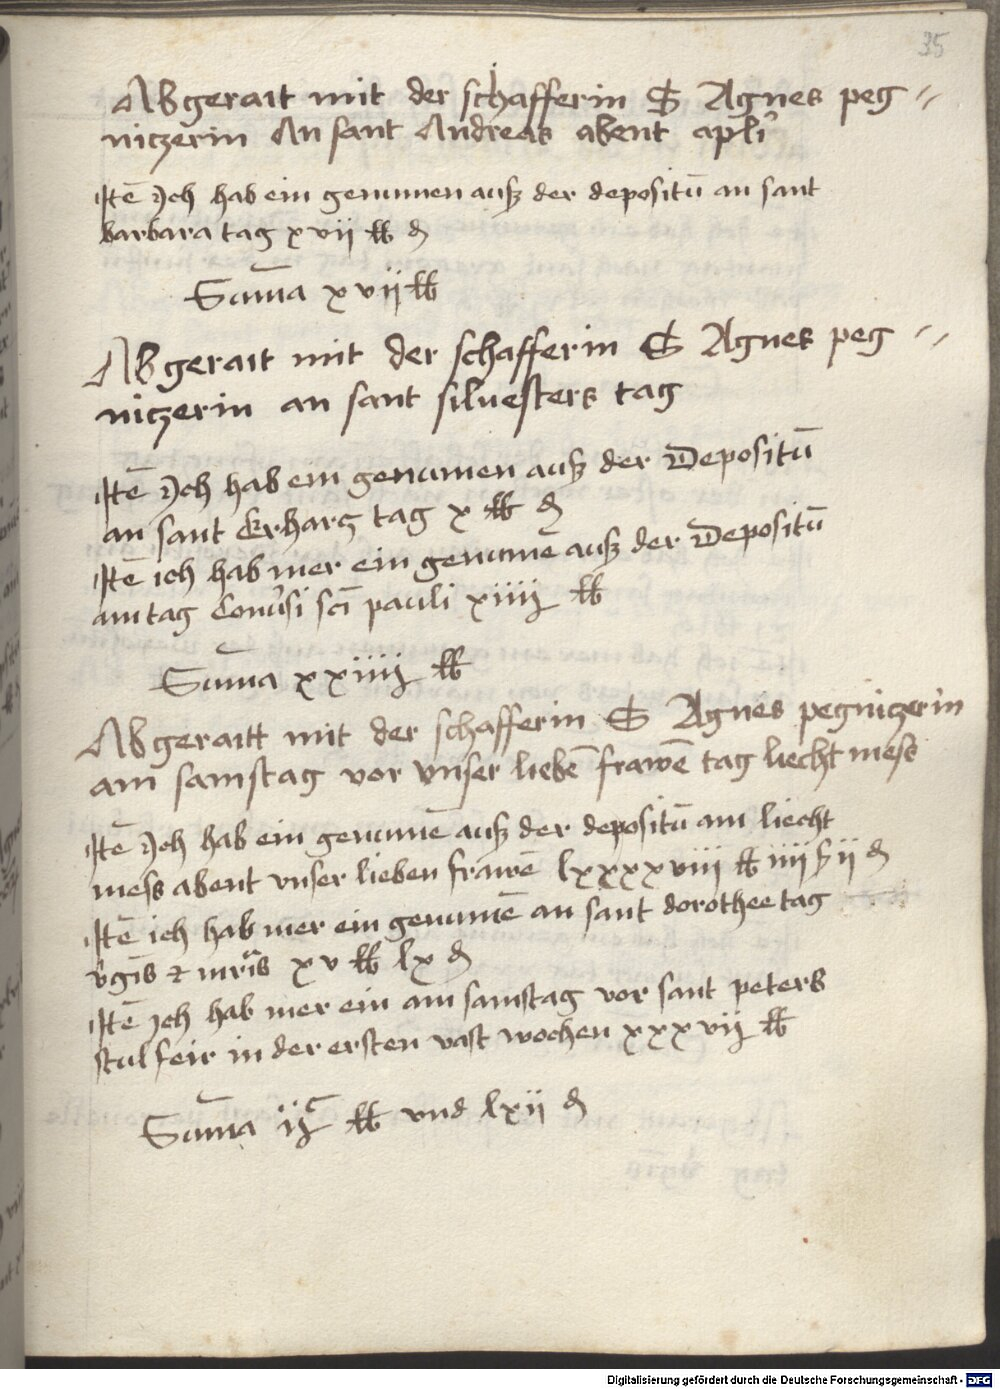 35
Abgeraıt mit der schafferin S Agnes peg =
niczerin An sant Andreas abent apl̄i
Itē Jch hab ein genumen auß der depositū an sant
barbara tag xvij lb ₰
Sūma xvij lb
Abgeraıt mit der schafferin S Agnes peg =
niczerin an sant siluesters tag
Itē Jch hab ein genumen auß der Depositū
an sant Erharcz tag x lb ₰
Itē ich hab mer ein genumē auß der Depositū
am tag Conu̓si sc̄i pauli xiiij lb
Sūma xxiiij lb
Abgeraitt mit der schafferin S Agnes pegniczerin
am samstag vor vnser liebē frawē tag liecht mess
Itē Jch hab ein genumē auß der depositū am liecht
mess abent vnser lieben frawē lxxxxviii lb iiii ß ii ₰
Itē ich hab mer ein genumē an sant dorothee tag
v̓gīs ⁊ mr̄is xv lb lx ₰
Itē Jch hab mer ein am samstag vor sant peters
stul feir in der ersten vast wochen xxxvij lb
Sūma ijᶜ lb vnd lxij ₰
Digitalisierung gefördert durch die Deutsche Forschungsgemeinschaft - DFG